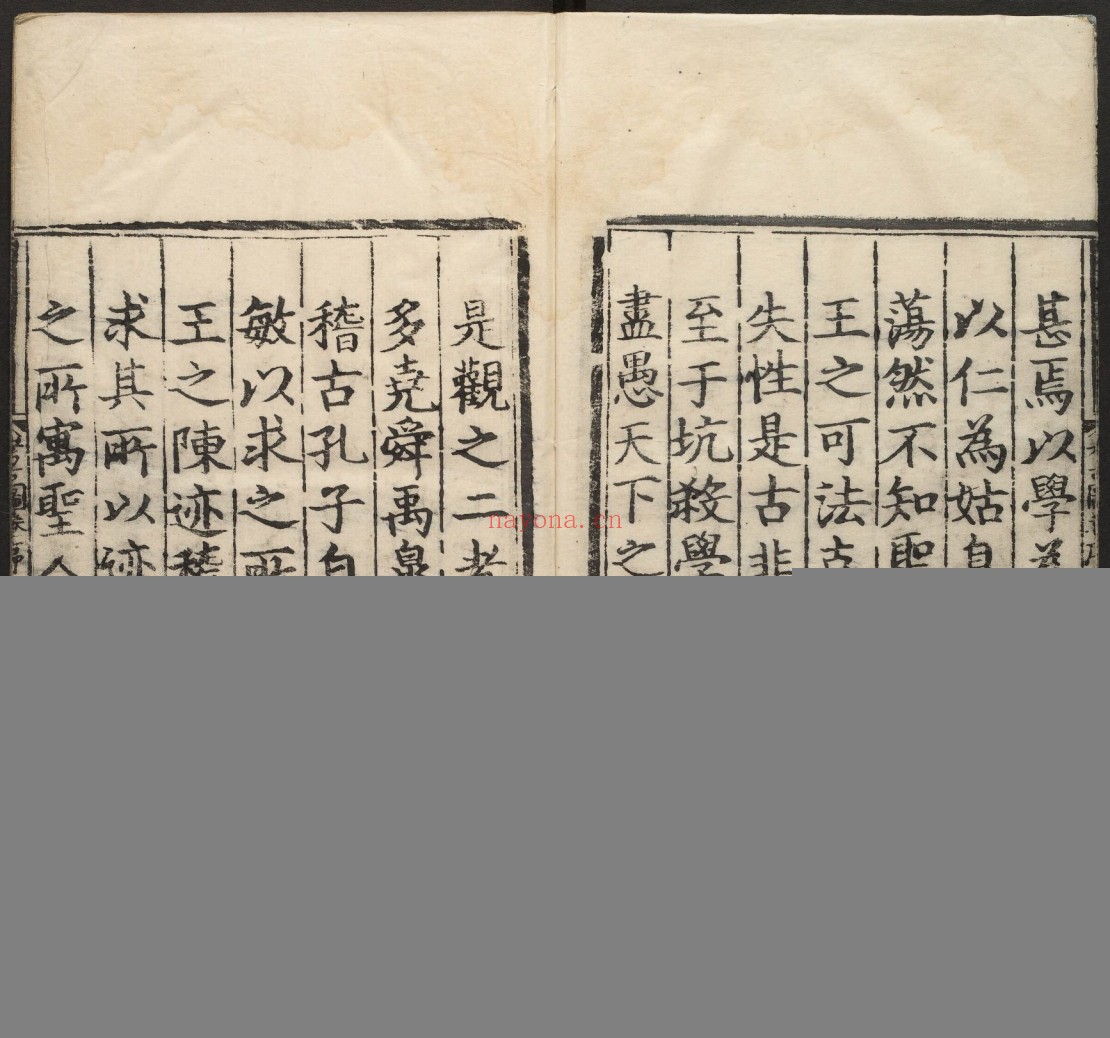 甚焉以學
以仁為姑自
蕩然不知聖
王之可法古
失性是古非
至于坑殺學
盡愚天下之
是觀之二者
多堯舜禹臯
稽古孔子自
敏以求之所
王之陳迹稽
求其所以迹
之所寓聖人
nayona.cn